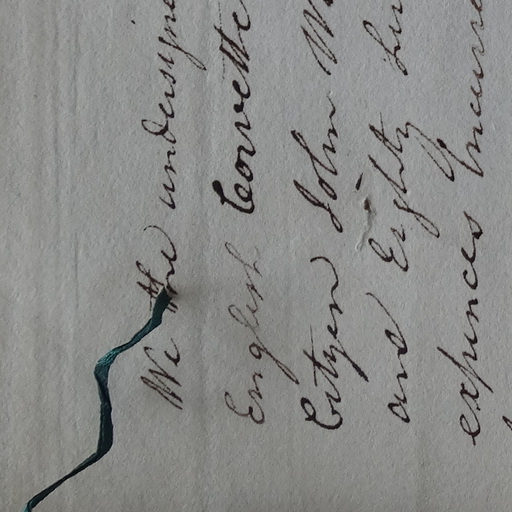 We the undersigne
English Corvette
Cityen John
and Eighty
expences Incurre